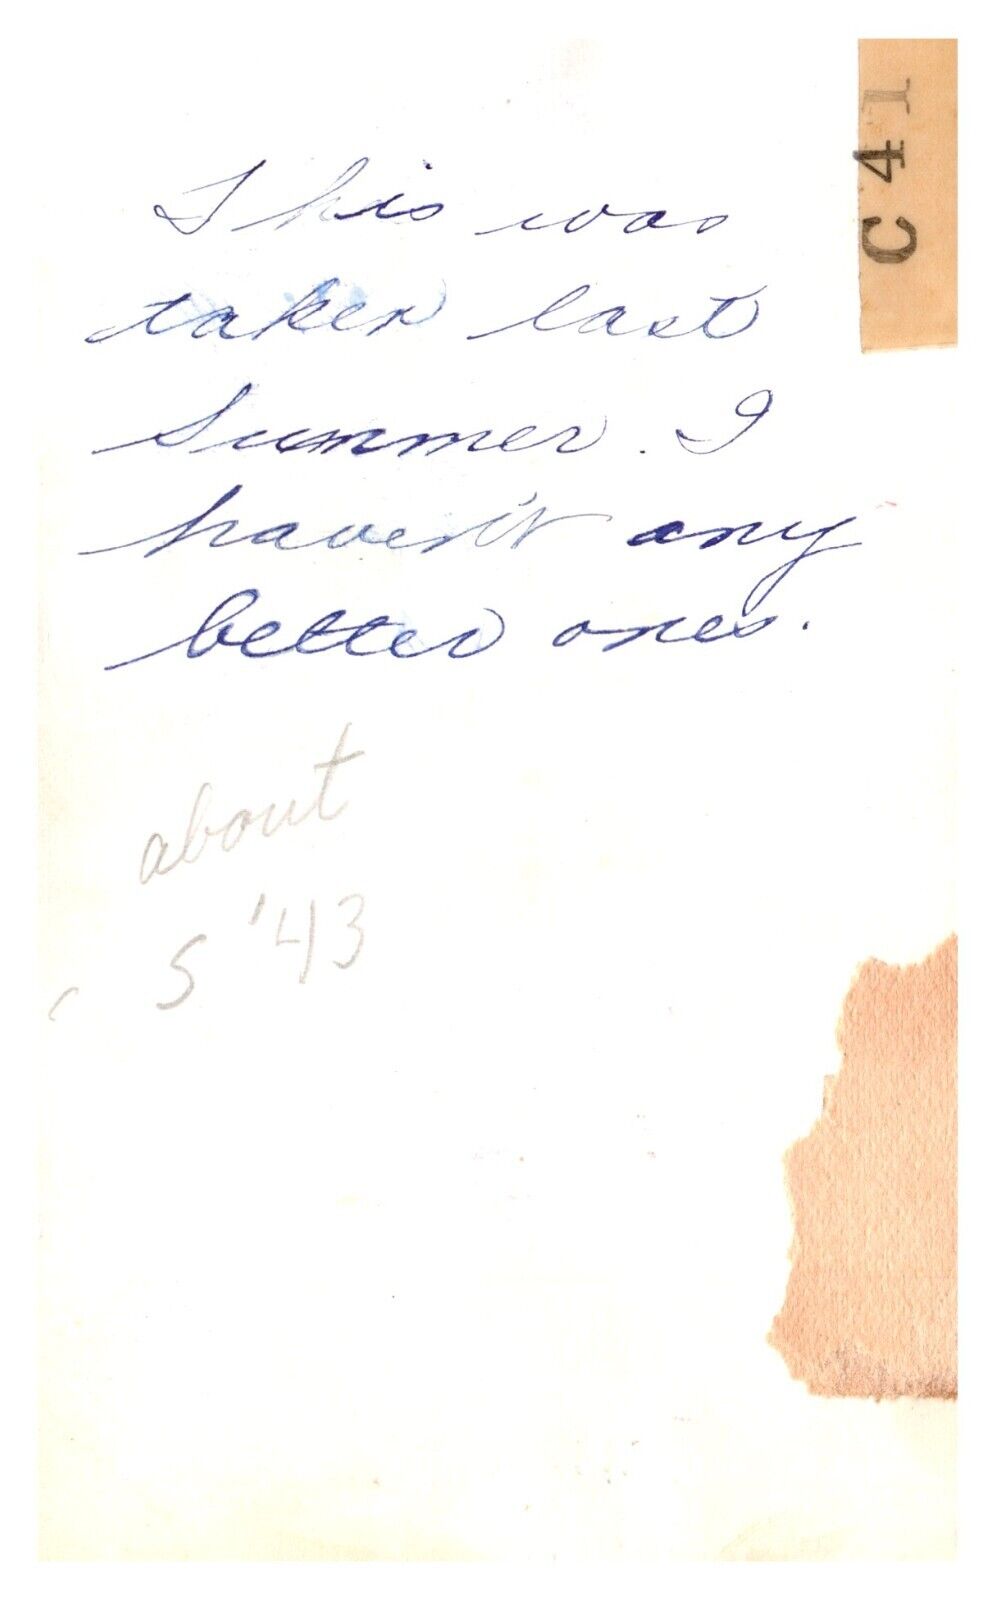 C41
This was
taken last
Summer. I
haven't any
better ones.
about
S '43